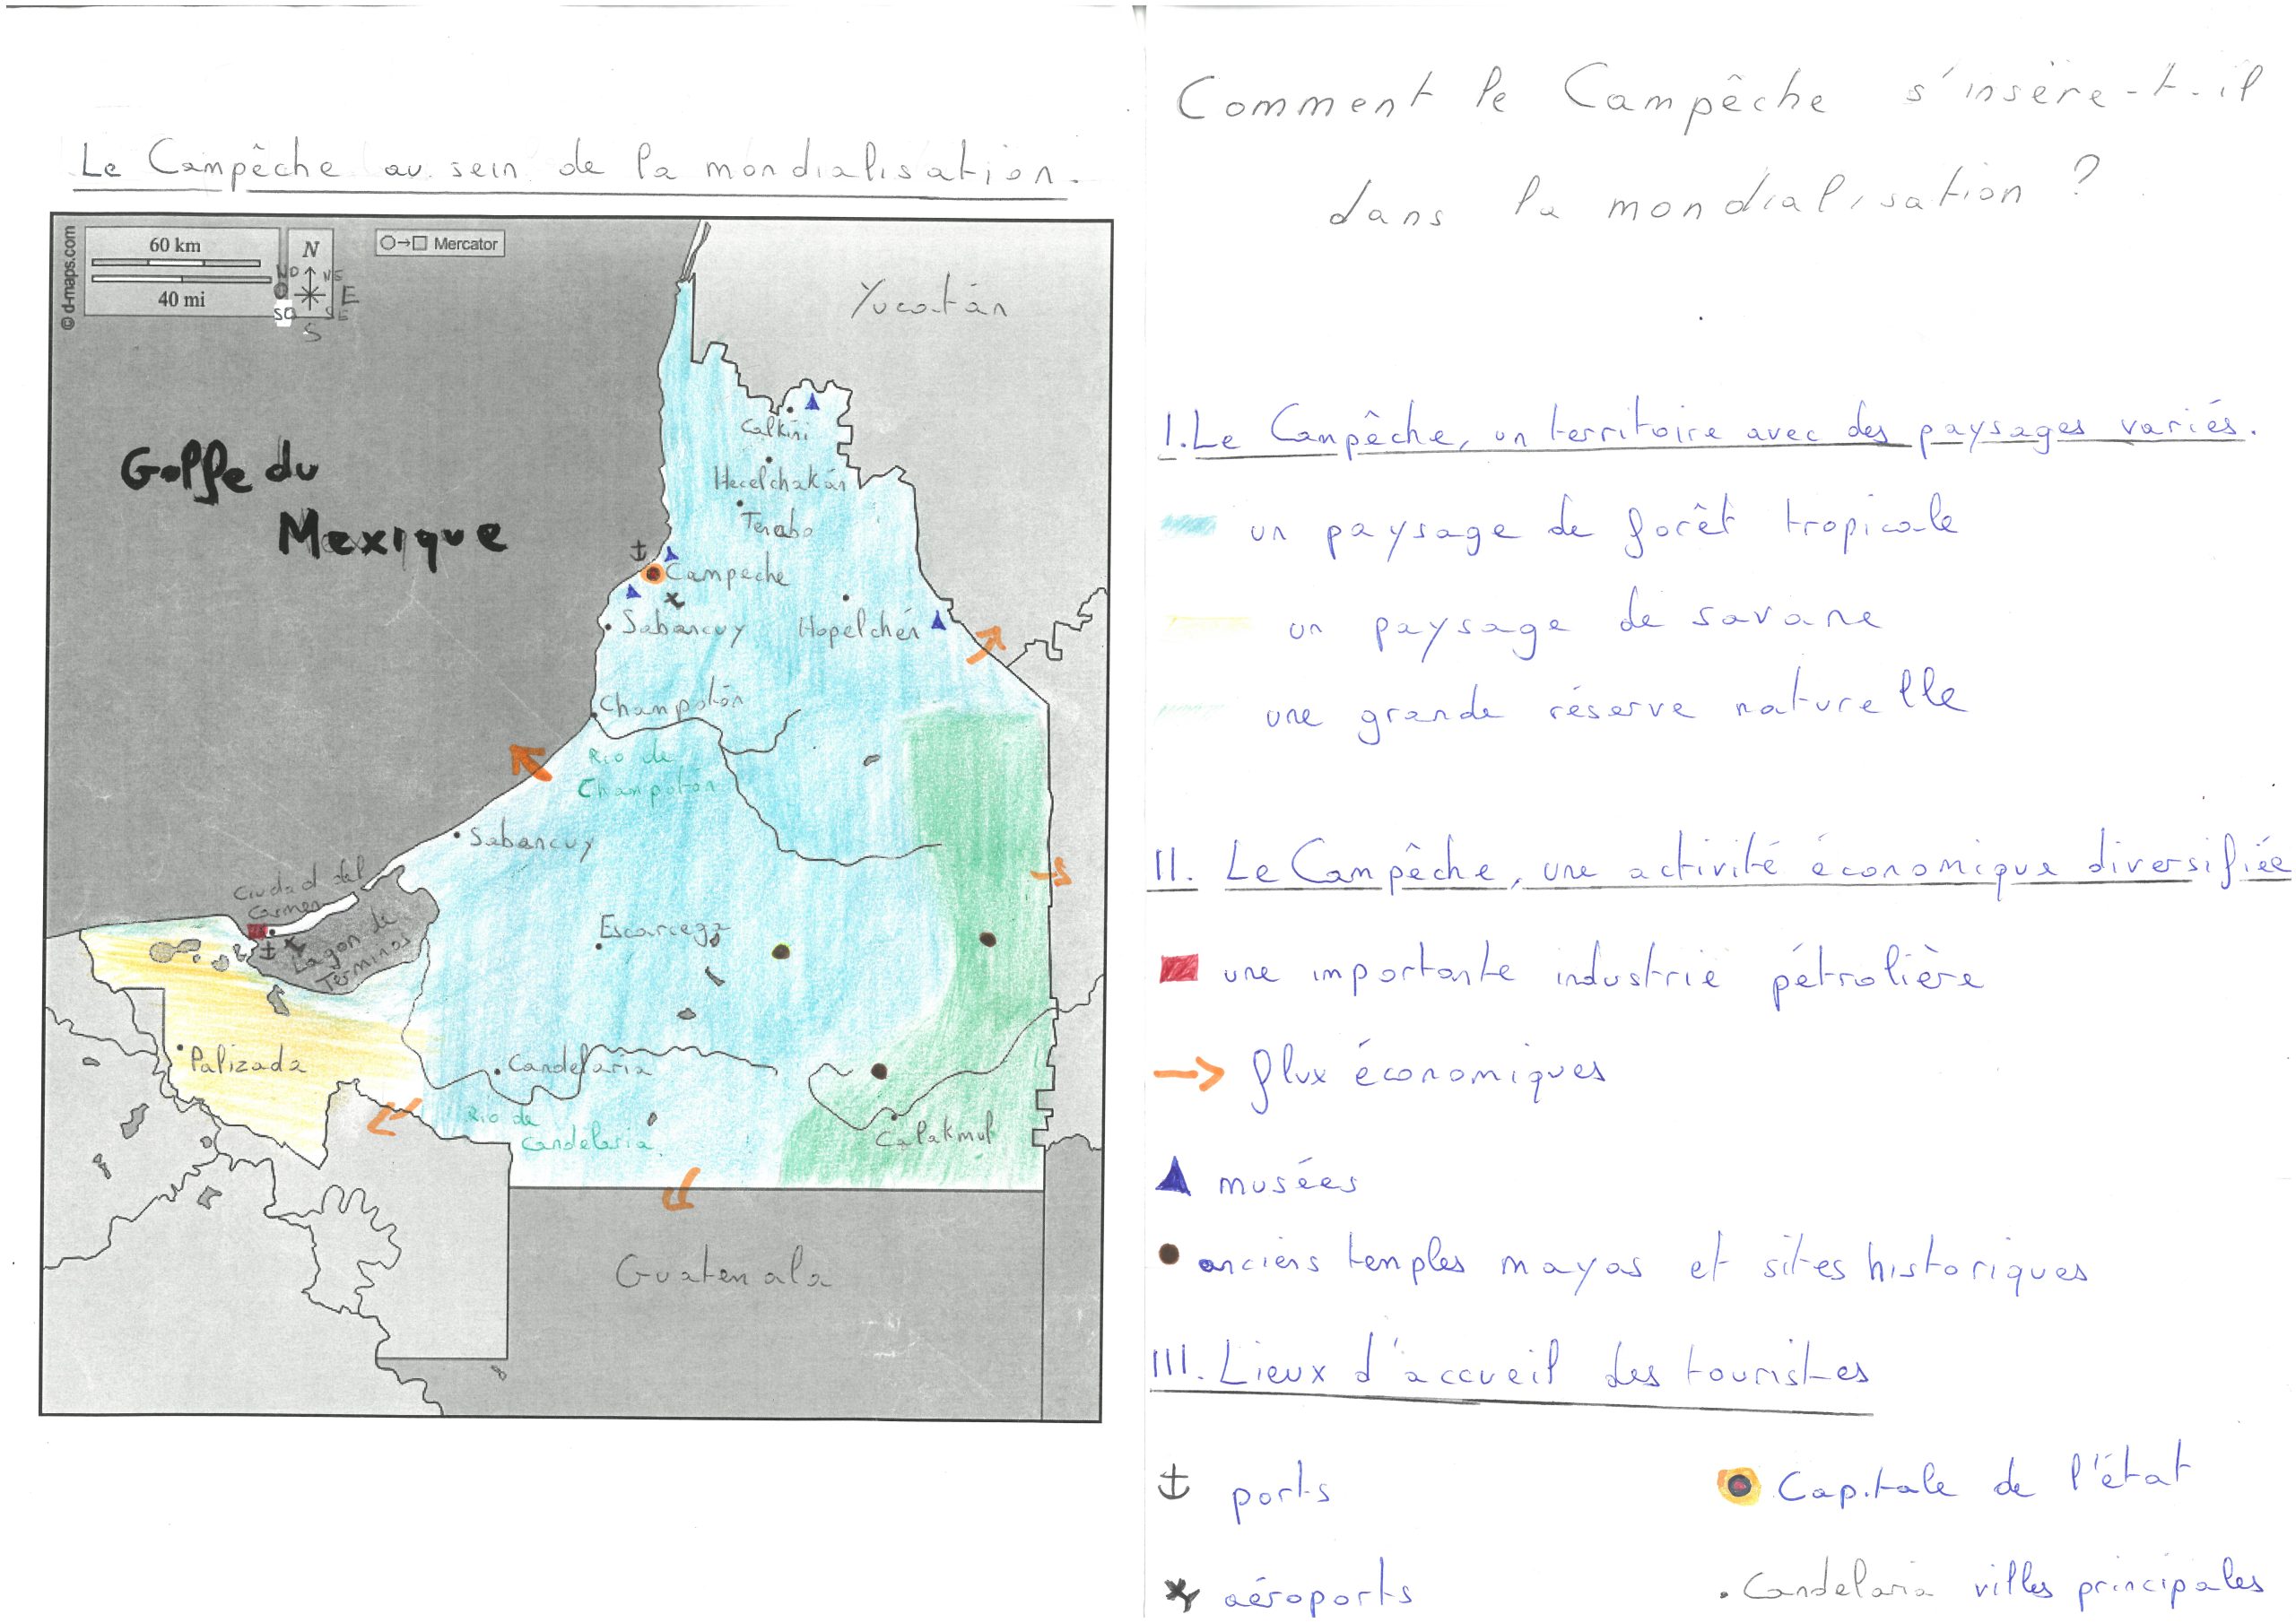 Le Campêche au sein de la mondialisation.
© d-maps.com
60 km
40 mi
N
NO
NE
O
E
SO
SE
S
Mercator
Yucatán
Golfe du
Mexique
Calkiní
Hecelchakán
Tenabo
Campeche
Sabancuy
Hopelchén
Champotón
Rio de
Champotón
Sabancuy
Ciudad del
Carmen
Lagon de
Términos
Escarcega
Palizada
Candelaria
Rio de
Candelaria
Calakmul
Guatemala
Comment le Campêche s'insère-t-il
dans la mondialisation ?
I. Le Campêche, un territoire avec des paysages variés.
un paysage de forêt tropicale
un paysage de savane
une grande réserve naturelle
II. Le Campêche, une activité économique diversifiée
une importante industrie pétrolière
flux économiques
musées
anciens temples mayas et sites historiques
III. Lieux d'accueil des touristes
ports
Capitale de l'état
aéroports
Candelaria villes principales